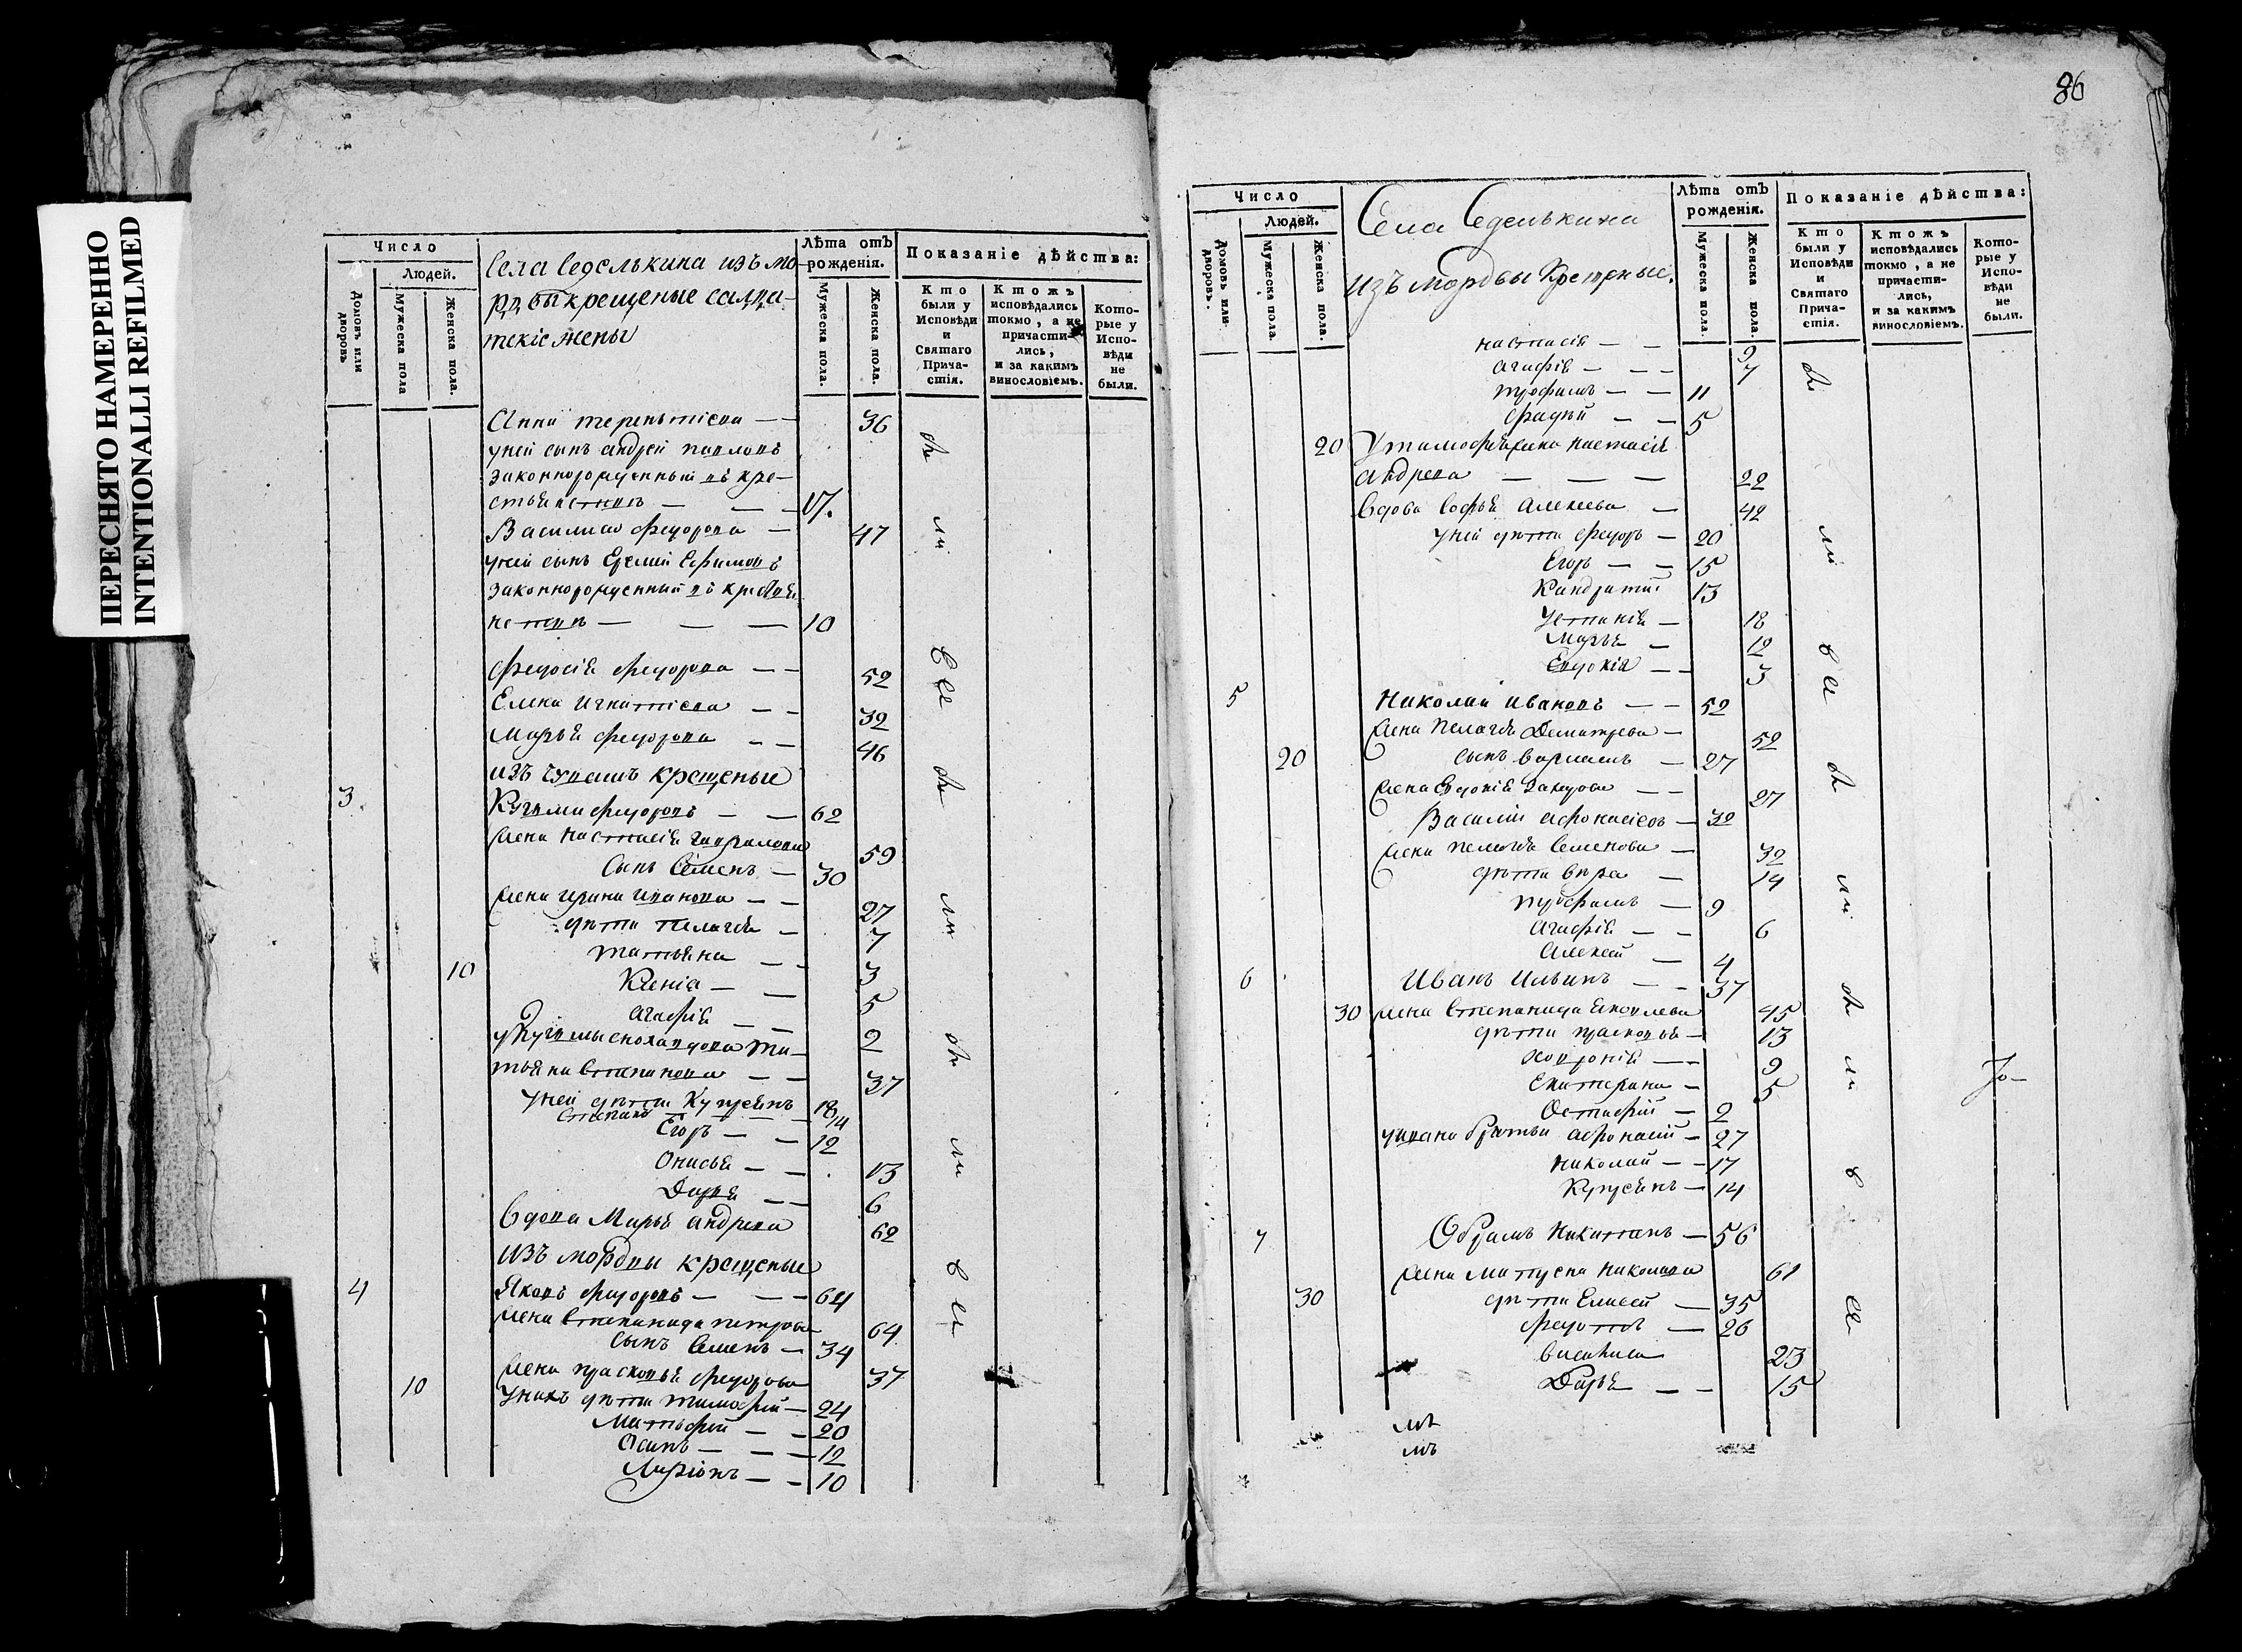 ПЕРЕСНЯТО НАМЕРЕННО
INTENTIONALLI REFILMED
Число
Людей.
Домовъ или дворовъ
Мужеска пола
Женска пола.
Села Седелькина изъ мо-
рдвы крещеные салда-
тские жены
Лѣта отъ рожденія.
Мужеска пола.
Женска пола.
Показаніе дѣйства:
Кто были у Исповѣди и Святаго Прича-стія.
Ктожъ исповѣдались токмо, а не причасти-лись, и за какимъ винословіемъ.
Кото-рые у Испо-вѣди не были.
Анна терентіева — — 36
уней сынъ андрей павловъ
законнорожденный въ кре-
стьянствѣ — — — 17.
Василиса федорова — 47
уней сынъ Еремей Ефимовъ
законнорожденный въ крестья
нствѣ — — — 10
федосія федорова — — 52
Елена игнатіева — — 32
Марья федорова — — 46
изъ чувашъ крещеные
3 Кузма федоровъ — — 62
жена настасія гавралова 59
сынъ Семенъ — 30
жена ирина иванова — — 27
дѣти пелагея — 7
татьяна — — 3
10 Ксенія — — 5
агафія — — 2
у Кузмы снохавдова та-
тьяна Степанова — — 37
уней дѣти Купреянъ 18
Степанъ — — — 14
Егоръ — — 12
Онисья — — 13
Дарья — — 6
Вдова Марья андреева 62
изъ мордвы крещеные
4 Яковъ федоровъ — — — 64
жена Степанида петрова 64
сынъ Семенъ — 34
жена прасковья федорова 37
10 Унихъ дѣти тимофей — 24
Матьфей — — 20
Осипъ — — — 12
Ларіонъ — — 10
86
Число
Людей.
Домовъ или дворовъ.
Мужеска пола.
Женска пола.
Села Седелькина
изъ мордвы Крещеные.
Лѣта отъ рожденія.
Мужеска пола.
Женска пола.
Показаніе дѣйства:
Кто были у Исповѣди и Святаго Прича-стія.
Ктожъ исповѣдались токмо, а не причасти-лись, и за какимъ винословіемъ.
Кото-рые у Испо-вѣди не были.
настасія — — 9
агафія — — — 7
трофимъ — — 11
фадѣй — — 5
20 У тимофея жена настасія
андреева — — — 22
Вдова Софья алексеева — 42
уней дѣти федоръ — 20
Егоръ — — 15
Кандратий 13
Устинія — 18
Марья — 12
Евдокія — — 3
5 Николай ивановъ — — 52
жена Пелагея Дементрева — 52
20 сынъ варламъ — 27
жена Евдокія захарова — — 27
Василий афонасіевъ — 32
жена пелагея Семенова — 32
дѣти вера — 14
трофимъ — 9
агафія — — 6
алексей — 4
6 Иванъ Ильинъ — — 37
30 жена Степанида яковлева 45
дѣти прасковья — 13
ховронія — — 9
Екатерина — 5
Остафий — 2
уивана братьи афонасий — 27
николай — — 17
Купреянъ — 14
7 Обрамъ Никитинъ — 56
жена матрена николаева 61
30 дѣти Елисей — 35
федотъ — 26
василиса 23
Дарья — — 15